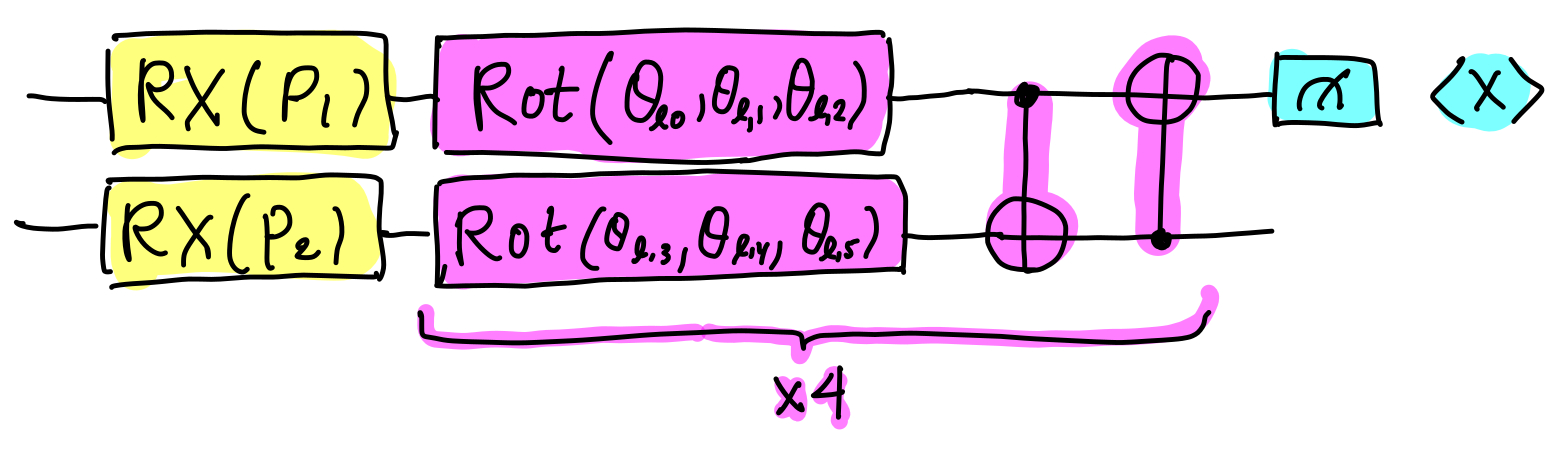 RX(P₁) Rot(θₗ₀,θₗ,₁,θₗ,₂) X
RX(P₂) Rot(θₗ,₃,θₗ,₄,θₗ,₅)
x4